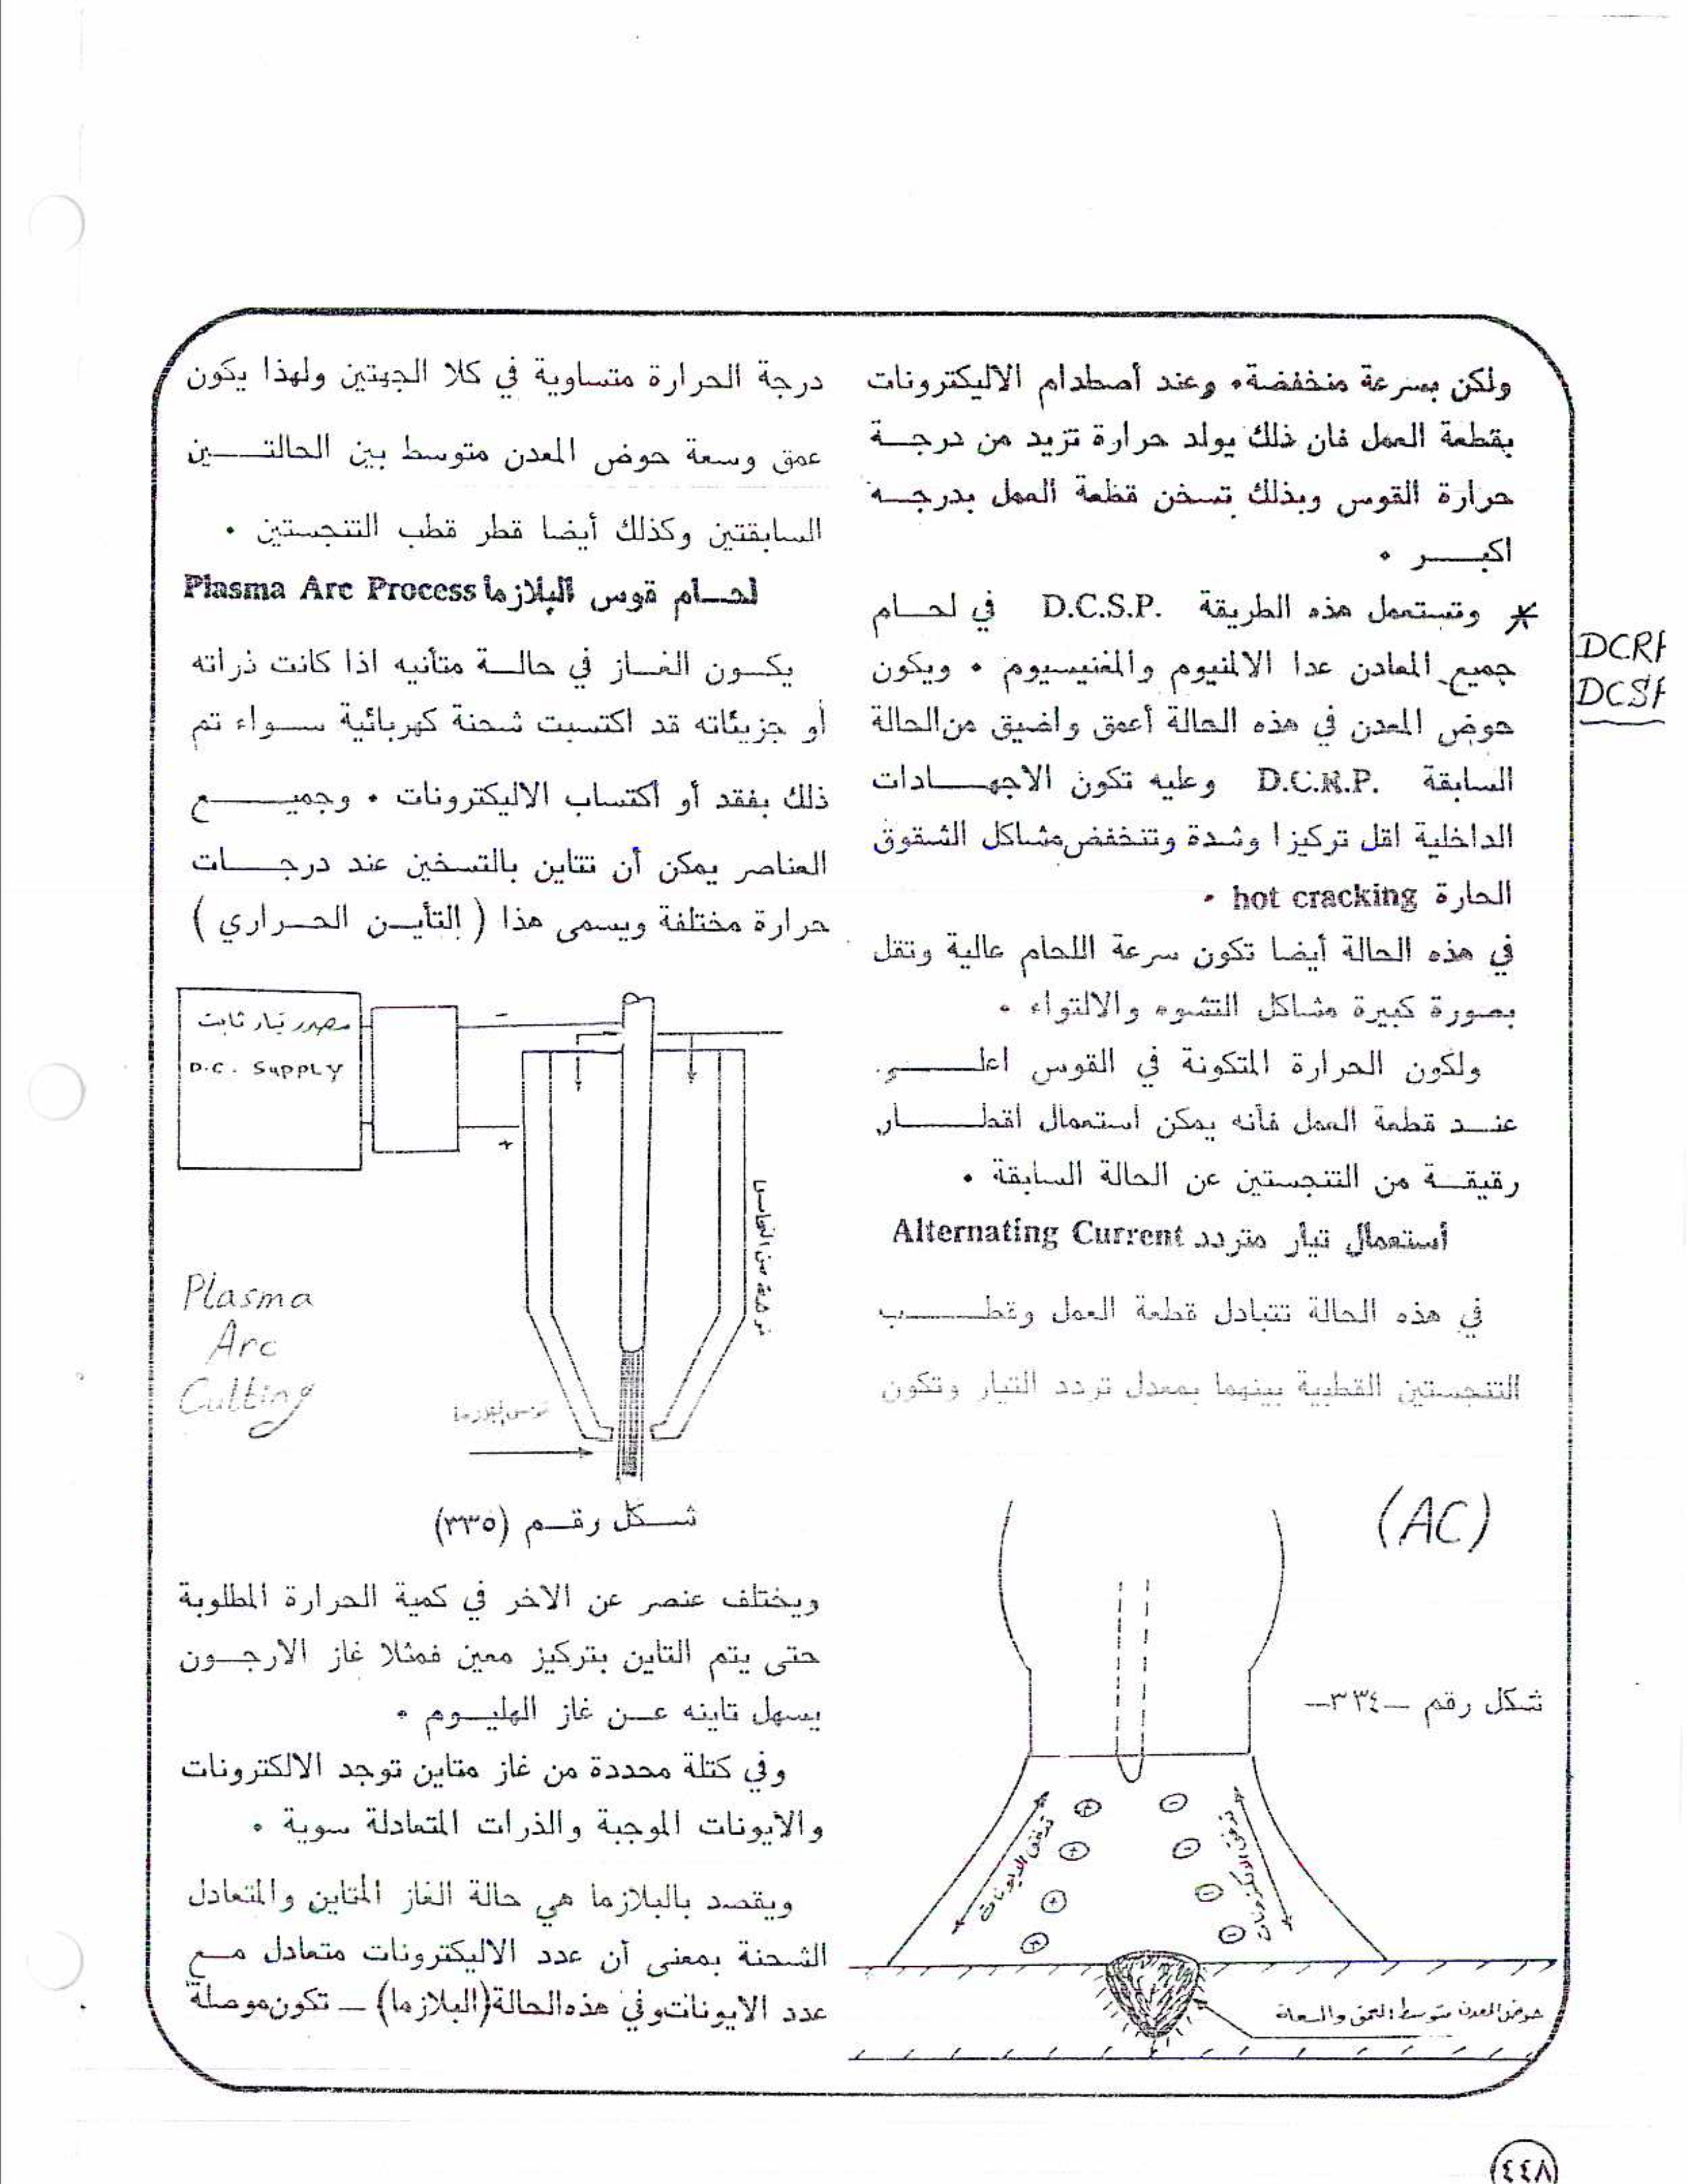 ولكن بسرعة منخفضة، وعند أصطدام الاليكترونات
بقطعة العمل فان ذلك يولد حرارة تزيد من درجــة
حرارة القوس وبذلك تسخن قطعة العمل بدرجــه
اكبــــر ٠
* وتستعمل هذه الطريقة D.C.S.P. في لحــام
جميع المعادن عدا الالمنيوم والمغنيسيوم ٠ ويكون
حوض المعدن في هذه الحالة أعمق واضيق من الحالة
السابقة D.C.R.P. وعليه تكون الاجهـــادات
الداخلية اقل تركيزا وشدة وتنخفض مشاكل الشقوق
الحارة hot cracking ٠
في هذه الحالة أيضا تكون سرعة اللحام عالية وتقل
بصورة كبيرة مشاكل التشوه والالتواء ٠
ولكون الحرارة المتكونة في القوس اعلــــى
عنــد قطعة العمل فأنه يمكن استعمال اقطــــار
رقيقــة من التنجستين عن الحالة السابقة ٠
أستعمال تيار متردد Alternating Current
في هذه الحالة تتبادل قطعة العمل وقطــــب
التنجستين القطبية بينهما بمعدل تردد التيار وتكون
(AC)
شكل رقم –٣٣٤–
تدفق الايونات
تدفق الالكترونات
حوض المعدن متوسط العمق والسعة
DCSP
درجة الحرارة متساوية في كلا الجهتين ولهذا يكون
عمق وسعة حوض المعدن متوسط بين الحالتــــين
السابقتين وكذلك أيضا قطر قطب التنجستين ٠
لحــام قوس البلازما Plasma Arc Process
يكــون الغــاز في حالــة متأنيه اذا كانت ذراته
أو جزيئاته قد اكتسبت شحنة كهربائية ســواء تم
ذلك بفقد أو أكتساب الاليكترونات ٠ وجميــــع
العناصر يمكن أن تتاين بالتسخين عند درجـــات
حرارة مختلفة ويسمى هذا ( التأيــن الحــراري )
مصدر تيار ثابت
D.C. SUPPLY
–
+
فوهة من النحاس
قوس البلازما
Plasma
Arc
Cutting
شــكل رقــم (٣٣٥)
ويختلف عنصر عن الاخر في كمية الحرارة المطلوبة
حتى يتم التاين بتركيز معين فمثلا غاز الارجــون
يسهل تاينه عــن غاز الهليــوم ٠
وفي كتلة محددة من غاز متاين توجد الالكترونات
والايونات الموجبة والذرات المتعادلة سوية ٠
ويقصد بالبلازما هي حالة الغاز المتاين والمتعادل
الشحنة بمعنى أن عدد الاليكترونات متعادل مــع
عدد الايونات وفي هذه الحالة (البلازما) – تكون موصلة
٤٤٨